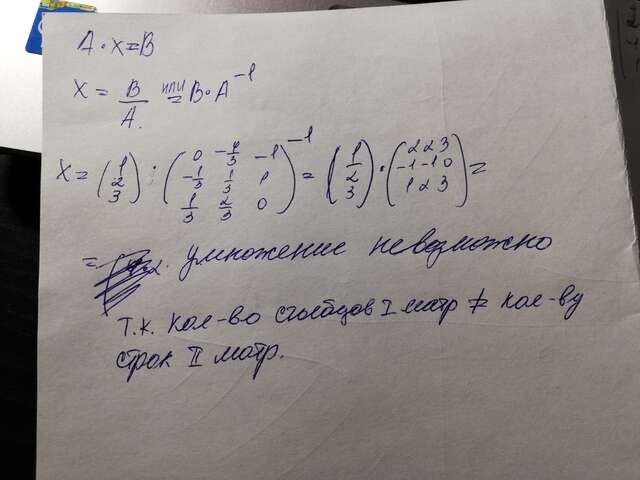 A · X = B
X = B/A. или = B · A⁻¹
X = (1 2 3) : (0 -4/3 -1 -1/3 1/3 1 1/3 2/3 0)⁻¹ = (1 2 3) · (2 2 3 -1 -1 0 1 2 3) =
= умножение невозможно
т.к. кол-во столбцов I матр ≠ кол-ву
строк II матр.